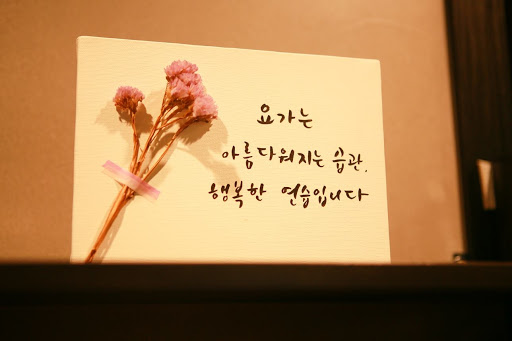 요가는
아름다워지는 습관,
행복한 연습입니다